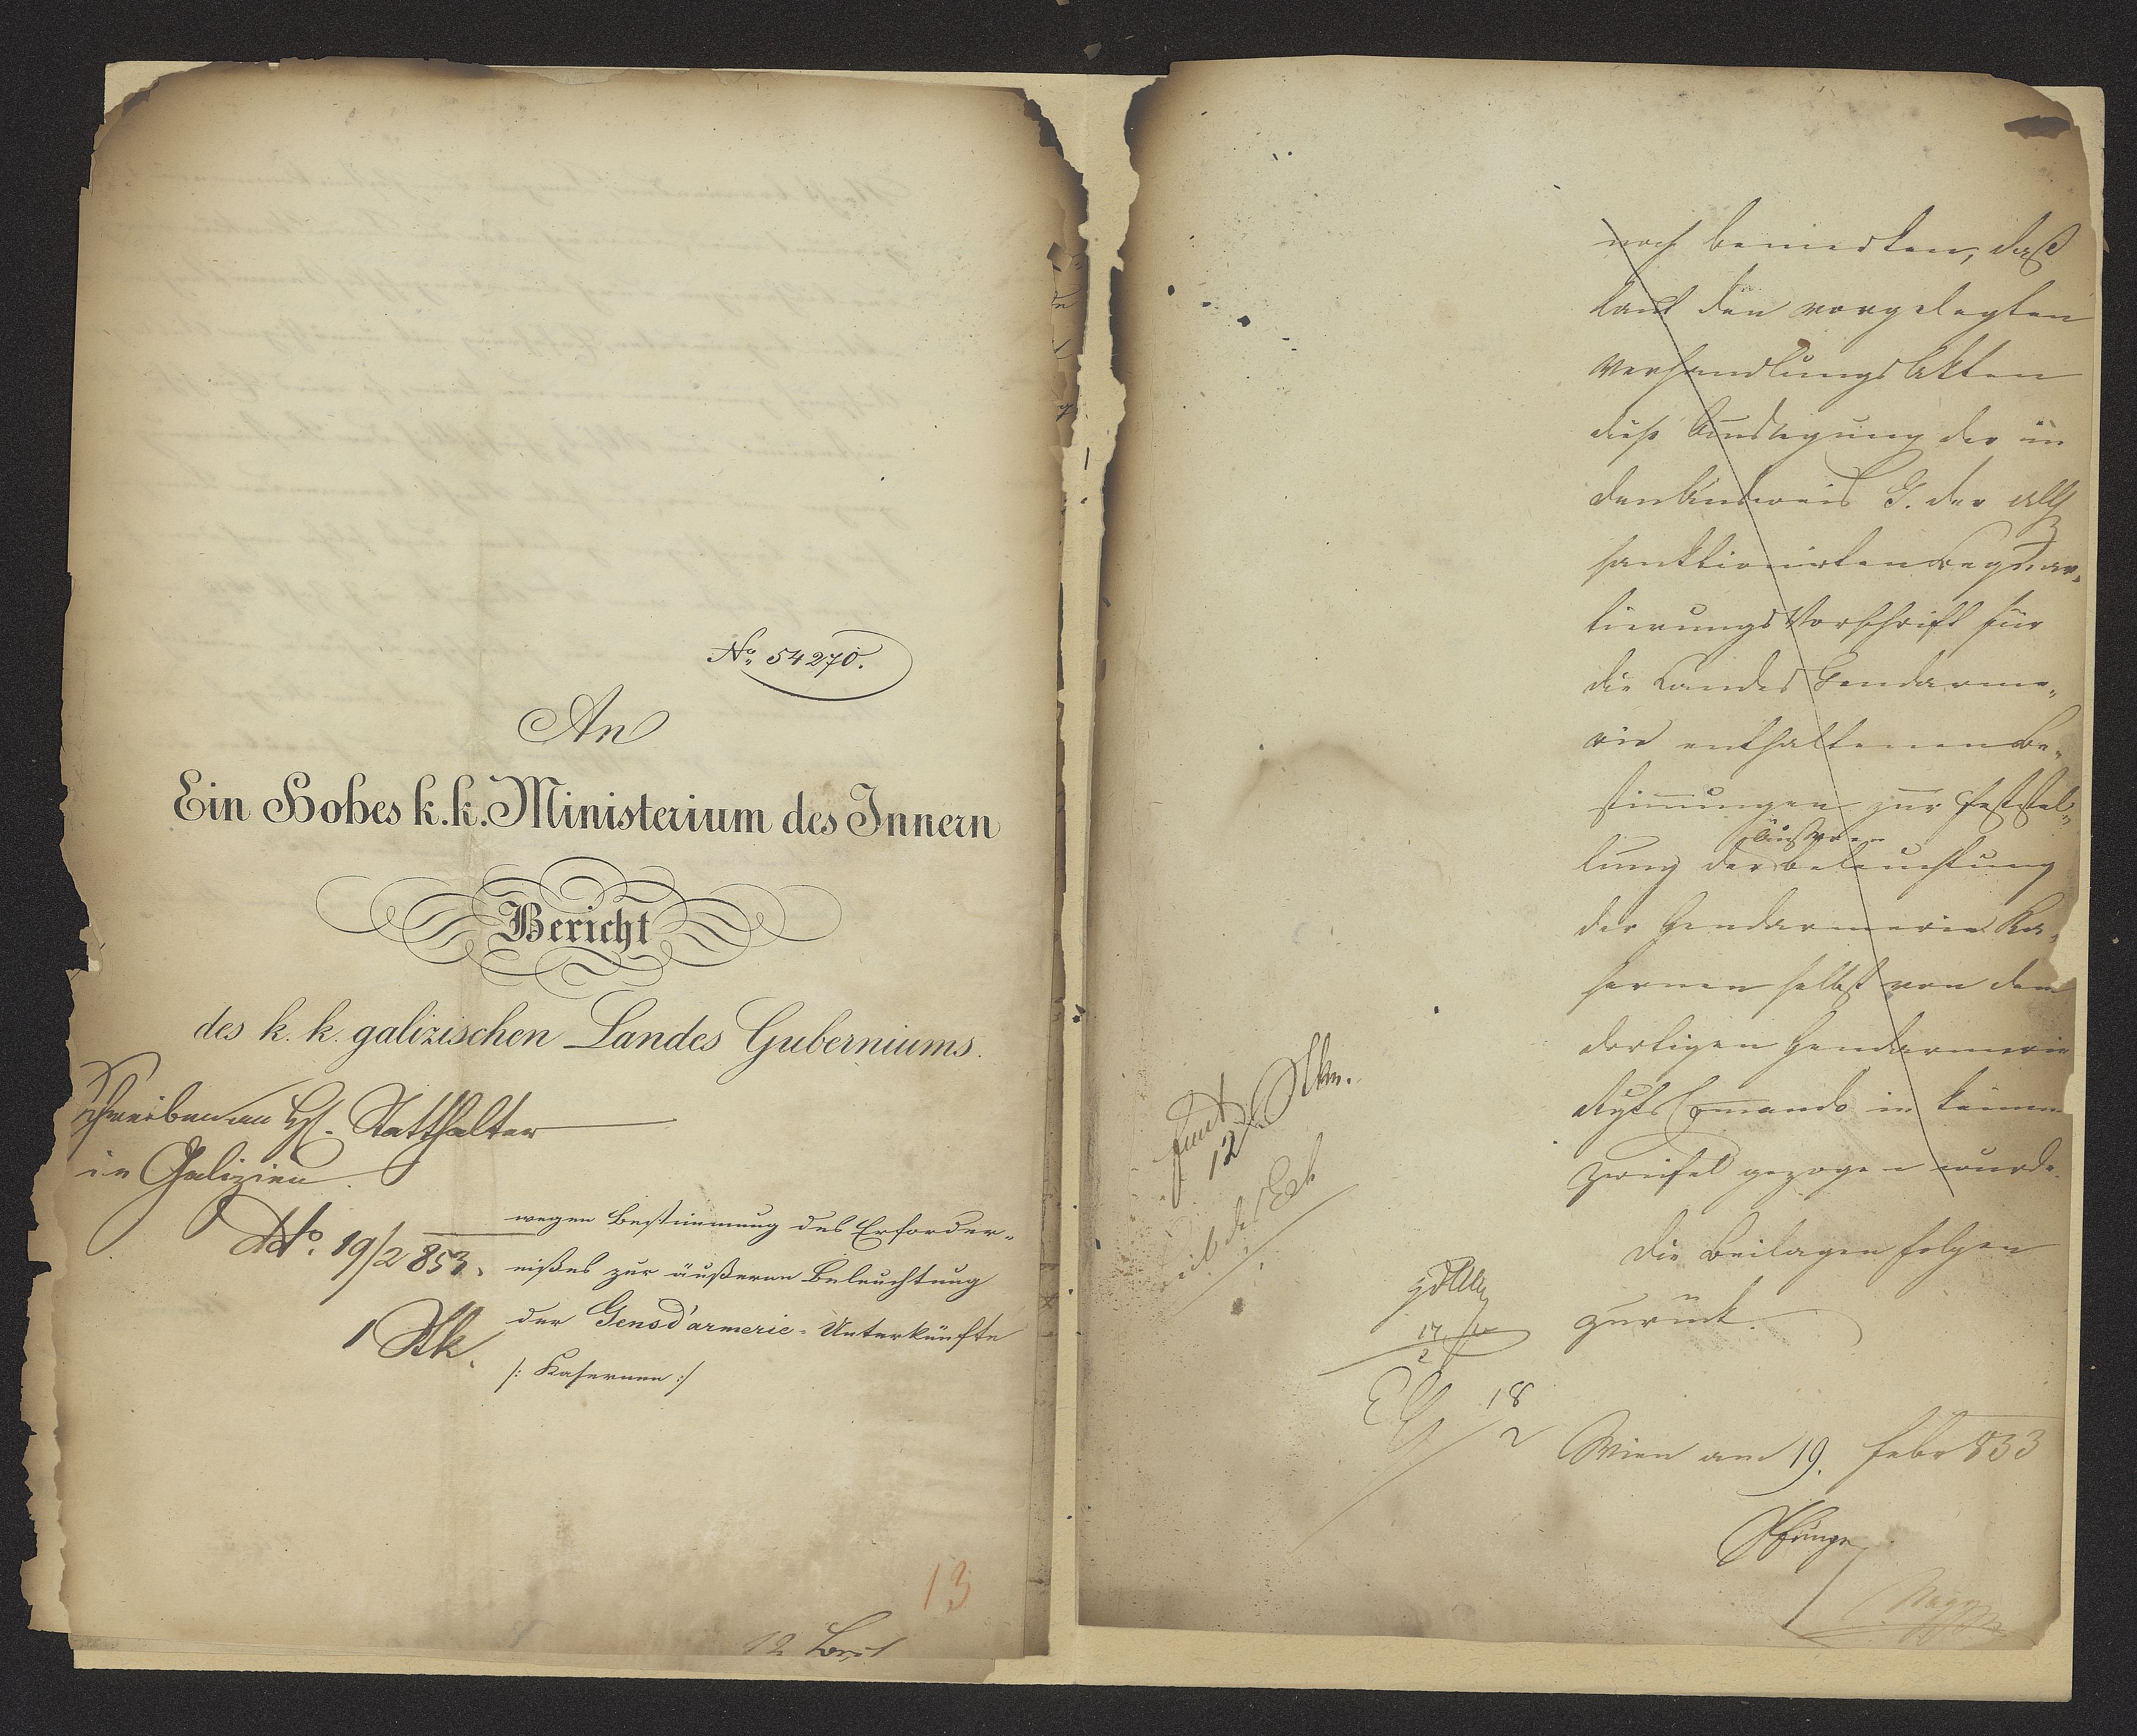 No. 54270.
An
Ein Hohes k. k. Ministerium des Innern
Bericht
des k. k. galizischen Landes Guberniums.
Schreiben an H. Statthalter
in Galizien
ddo. 19/2 853.
1 Stk.
wegen Bestimmung des Erforder-
nißes zur äußeren Beleuchtung
der Gensd'armerie-Unterkünfte
/: Kasernen :/
13
noch bemerken, daß
laut den vorgelegten
Verhandlungs Akten
diese Auslegung der in
dem Ausweis G. der Allh
sanktionirten Bequar-
tierungs Vorschrift für
die Landes Gendarme-
rie enthaltenen Be-
stimmungen zur Feststel-
äußeren
lung der Beleuchtung
der Gendarmerie Ka-
sernen selbst von dem
dortigen Gendarmerie
Rgts Comando in keinen
Zweifel gezogen wurde.
Die Beilagen folgen
zurück.
12
17
2
18
2
Wien am 19. Febr 853